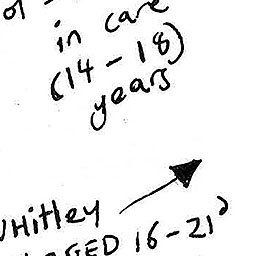 of
in care
(14-18)
years
WHitley
AGED 16-21